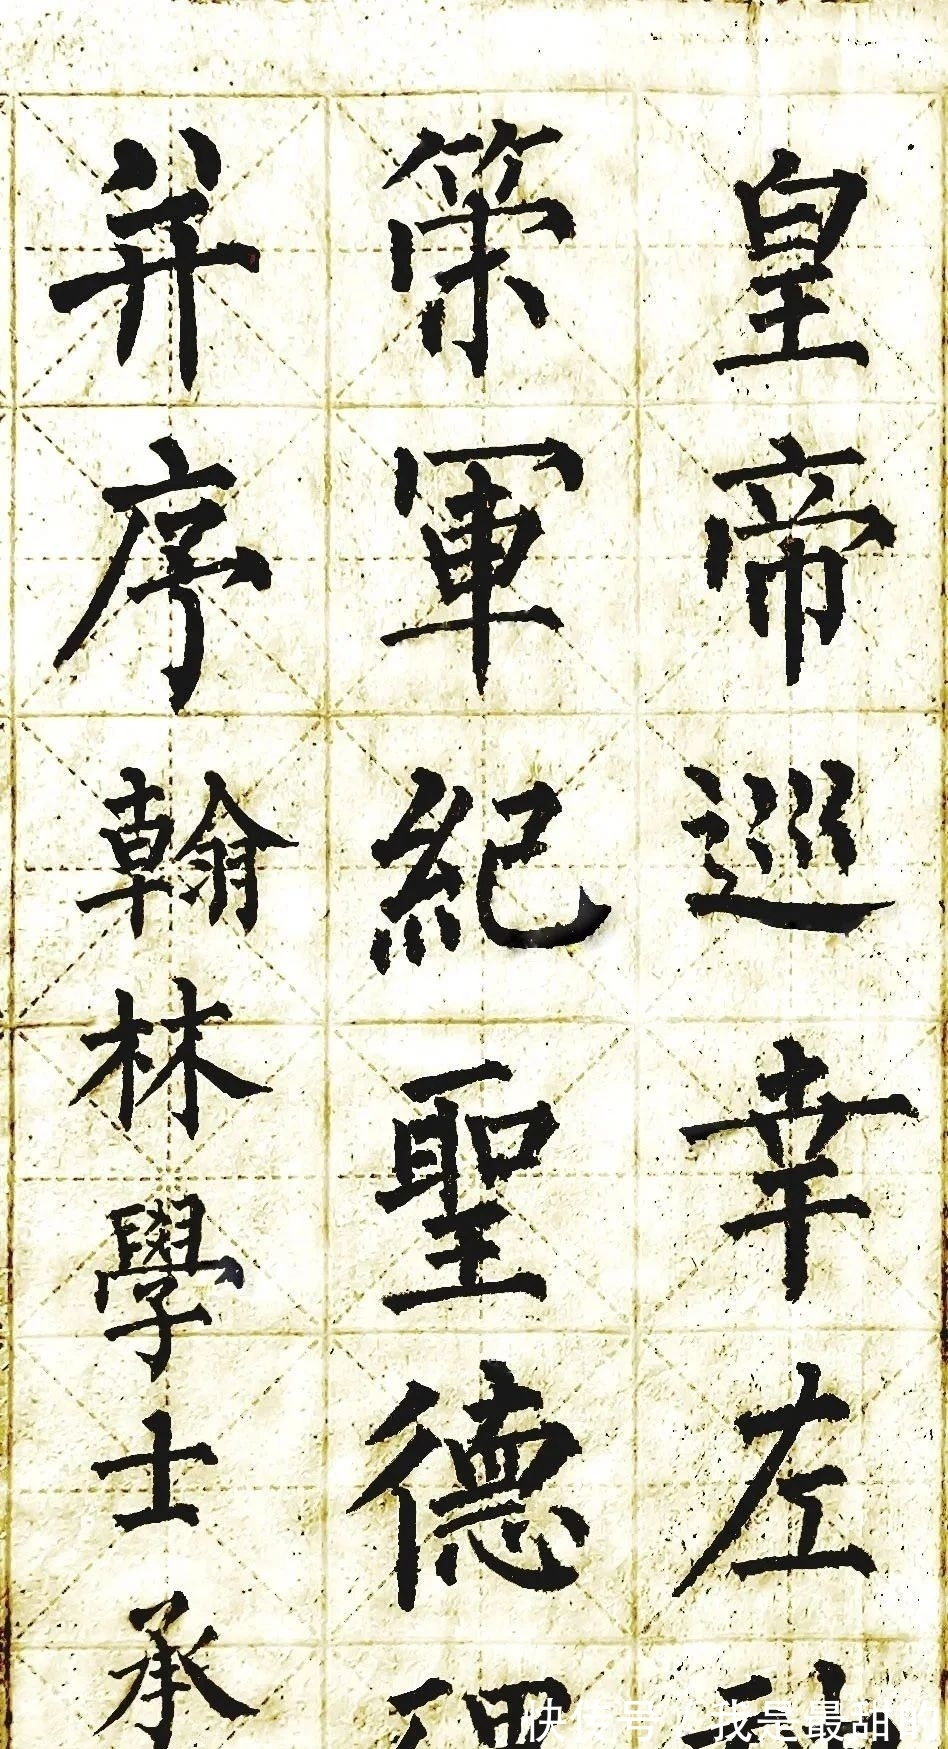 皇帝巡幸左
策軍紀聖德
并序翰林學士承
快传号/我是最甜的